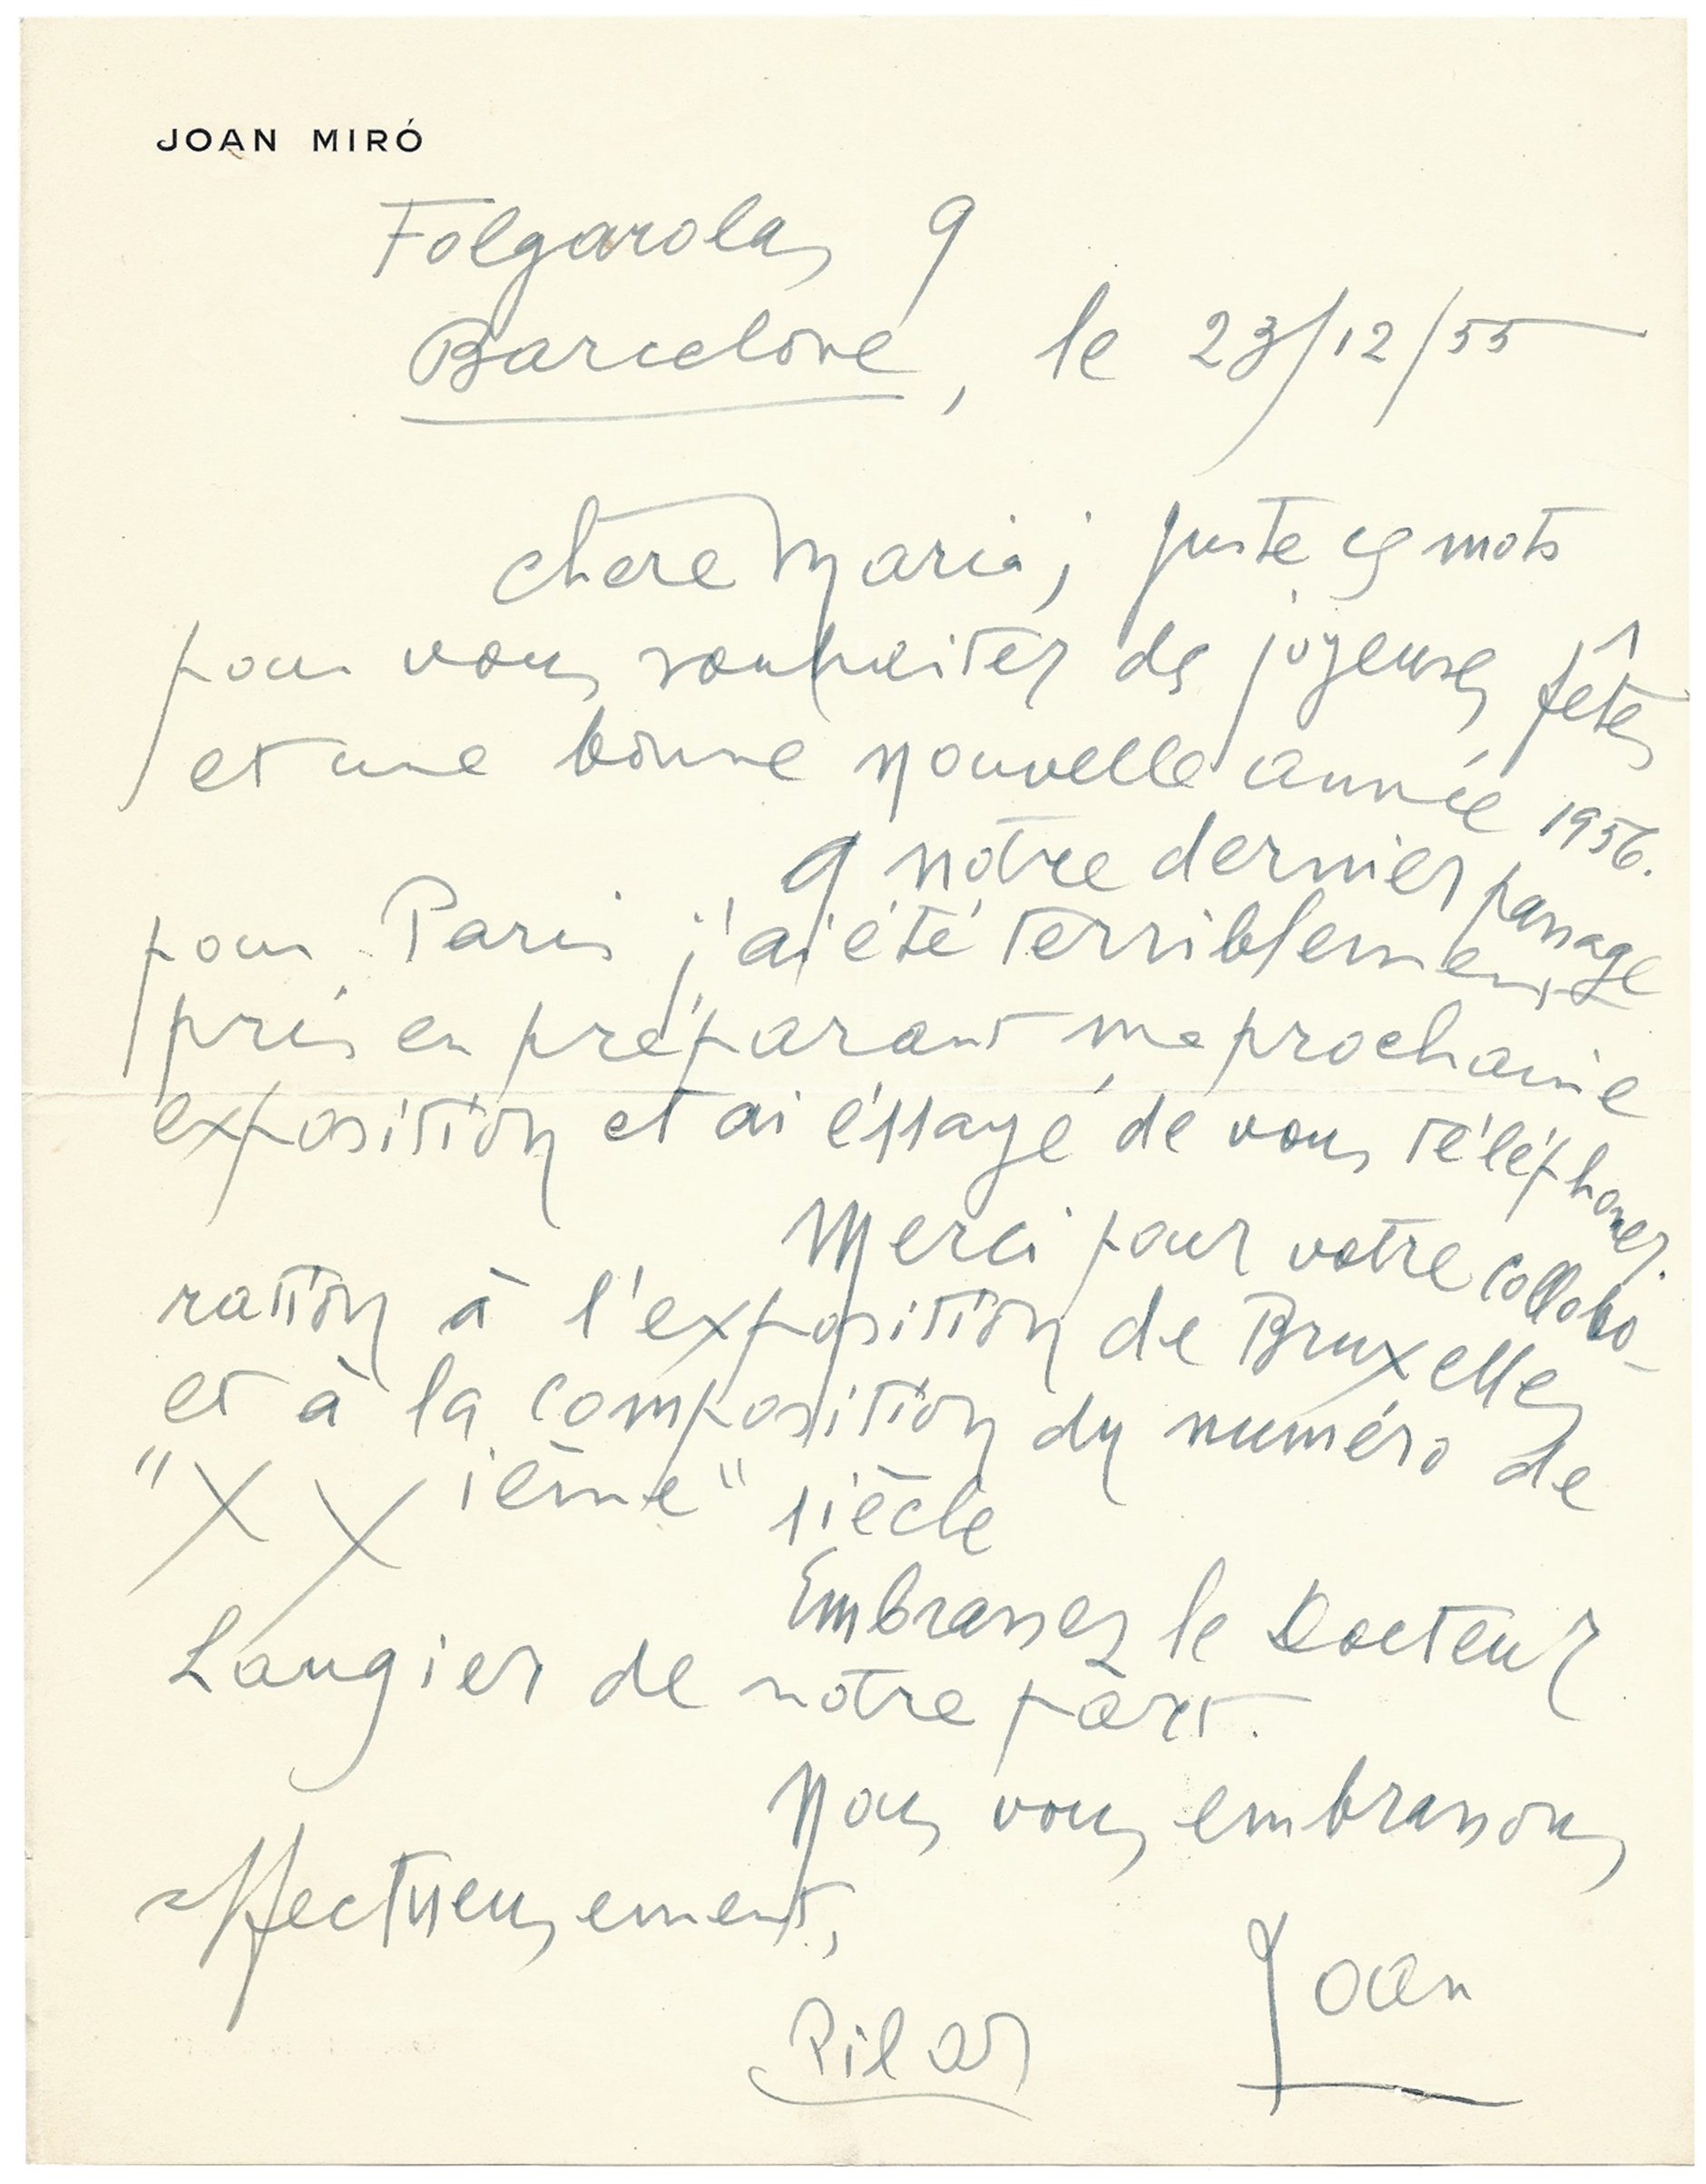 JOAN MIRÓ
Folgarolas 9
Barcelone, le 23/12/55
Chère Maria; juste ces mots
pour vous souhaiter des joyeuses fêtes
et une bonne nouvelle année 1956.
A notre dernier passage
pour Paris j'ai été terriblement
pris en préparant ma prochaine
exposition et ai éssayé de vous téléphoner.
Merci pour votre collabo-
ration à l'exposition de Bruxelles
et à la composition du numéro de
"XXième" siècle
Embrassez le Docteur
Laugier de notre part.
Nous vous embrassons
affectueusement,
Joan
Pilar